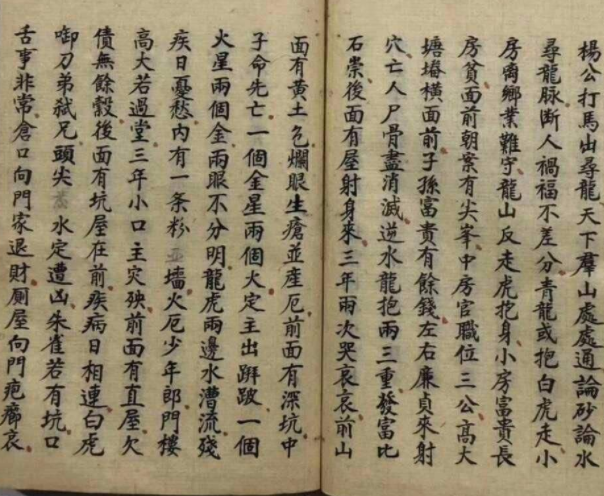 楊公打馬出尋龍天下羣山處處通論砂論水
尋龍脉斷人禍福不差分青龍或抱白虎走小
房離鄉業難守龍山反走虎抱身小房富貴長
房貧面前朝案有尖峯中房官職位三公高大
塘塝橫面前子孫富貴有餘錢左右廉貞來射
穴亡人尸骨盡消滅逆水龍抱兩三重發富比
石崇後面有屋射身來三年兩次哭哀哀前山
面有黃土色爛眼生瘡並產厄前面有深坑中
子命先亡一個金星兩個火定主出跰跛一個
火星兩個金兩眼不分明龍虎兩邊水漕流殘
疾日憂愁內有一条粉並墻火厄少年郎門樓
高大若過堂三年小口主灾殃前面有直屋欠
債無餘穀後面有坑屋在前疾病日相連白虎
啣刀弟弒兄頭尖水定遭凶朱雀若有坑口
舌事非常倉口向門家退財厠屋向門疤癤哀